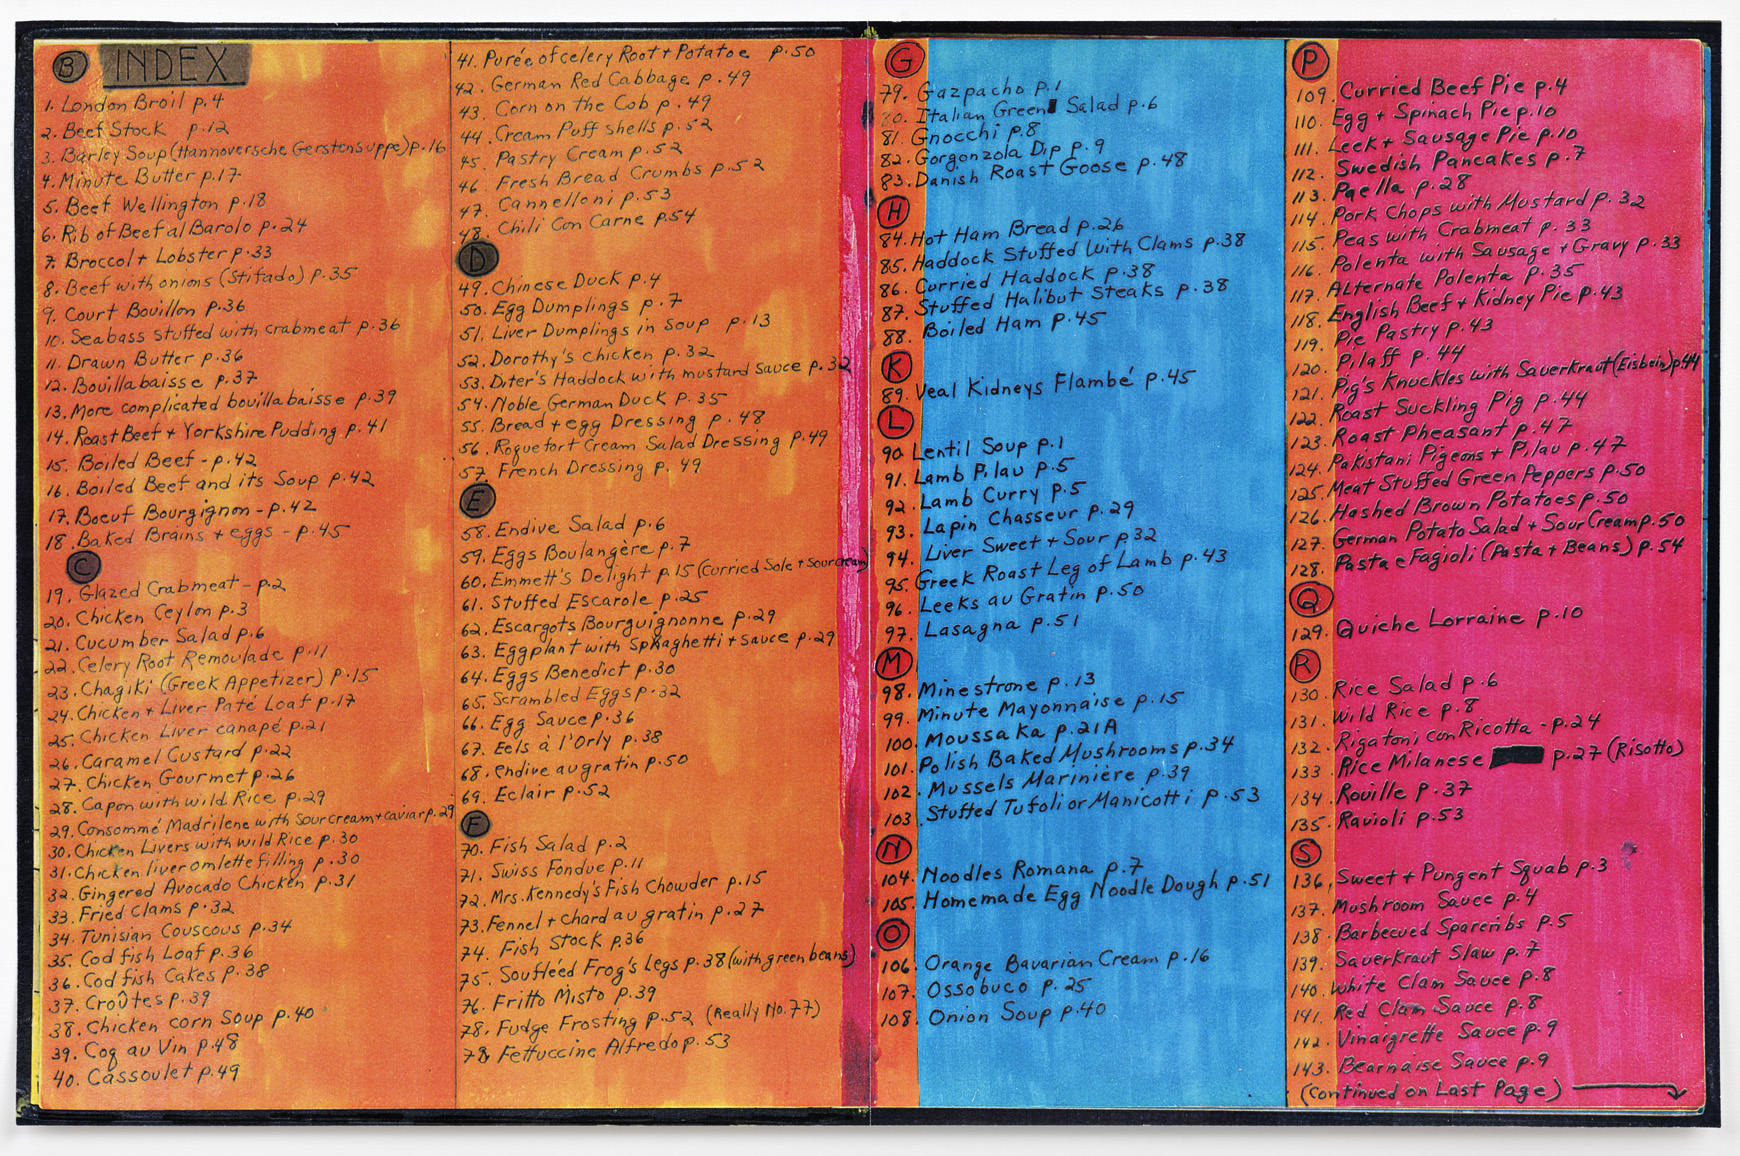 B INDEX
1. London Broil p.4
2. Beef Stock p.12
3. Barley Soup (Hannoversche Gerstensuppe) p.16
4. Minute Butter p.17
5. Beef Wellington p.18
6. Rib of Beef al Barolo p.24
7. Broccol + Lobster p.33
8. Beef with onions (Stifado) p.35
9. Court Bouillon p.36
10. Seabass stuffed with crabmeat p.36
11. Drawn Butter p.36
12. Bouillabaisse p.37
13. More complicated bouillabaisse p.39
14. Roast Beef + Yorkshire Pudding p.41
15. Boiled Beef - p.42
16. Boiled Beef and its Soup p.42
17. Boeuf Bourgignon - p.42
18. Baked Brains + eggs - p.45
C
19. Glazed Crabmeat - p.2
20. Chicken Ceylon p.3
21. Cucumber Salad p.6
22. Celery Root Remoulade p.11
23. Chagiki (Greek Appetizer) p.15
24. Chicken + Liver Paté Loaf p.17
25. Chicken Liver canapé p.21
26. Caramel Custard p.22
27. Chicken Gourmet p.26
28. Capon with wild Rice p.29
29. Consommé Madrilene with Sour cream + caviar p.29
30. Chicken Livers with wild Rice p.30
31. Chicken liver omlette filling p.30
32. Gingered Avocado Chicken p.31
33. Fried Clams p.32
34. Tunisian Couscous p.34
35. Cod fish Loaf p.36
36. Cod fish Cakes p.38
37. Croûtes p.39
38. Chicken corn Soup p.40
39. Coq au Vin p.48
40. Cassoulet p.49
41. Purée of celery Root + Potatoe p.50
42. German Red Cabbage p.49
43. Corn on the Cob p.49
44. Cream Puff shells p.52
45. Pastry Cream p.52
46. Fresh Bread Crumbs p.52
47. Cannelloni p.53
48. Chili Con Carne p.54
D
49. Chinese Duck p.4
50. Egg Dumplings p.7
51. Liver Dumplings in Soup p.13
52. Dorothy's chicken p.32
53. Diter's Haddock with mustard sauce p.32
54. Noble German Duck p.35
55. Bread + egg Dressing p.48
56. Roquefort Cream Salad Dressing p.49
57. French Dressing p.49
E
58. Endive Salad p.6
59. Eggs Boulangère p.7
60. Emmett's Delight p.15 (Curried Sole + Sourcream)
61. Stuffed Escarole p.25
62. Escargots Bourguignonne p.29
63. Eggplant with Sphaghetti + sauce p.29
64. Eggs Benedict p.30
65. Scrambled Eggs p.32
66. Egg Sauce p.36
67. Eels à l'Orly p.38
68. endive au gratin p.50
69. Eclair p.52
F
70. Fish Salad p.2
71. Swiss Fondue p.11
72. Mrs. Kennedy's Fish Chowder p.15
73. Fennel + chard au gratin p.27
74. Fish Stock p.36
75. Souffléed Frog's Legs p.38 (with green beans)
76. Fritto Misto p.39
78. Fudge Frosting p.52 (Really No. 77)
78 Fettuccine Alfredo p.53
G
79. Gazpacho p.1
80. Italian Green Salad p.6
81. Gnocchi p.8
82. Gorgonzola Dip p.9
83. Danish Roast Goose p.48
H
84. Hot Ham Bread p.26
85. Haddock Stuffed with Clams p.38
86. Curried Haddock p.38
87. Stuffed Halibut Steaks p.38
88. Boiled Ham p.45
K
89. Veal Kidneys Flambé p.45
L
90. Lentil Soup p.1
91. Lamb Pilau p.5
92. Lamb Curry p.5
93. Lapin Chasseur p.29
94. Liver Sweet + Sour p.32
95. Greek Roast Leg of Lamb p.43
96. Leeks au Gratin p.50
97. Lasagna p.51
M
98. Minestrone p.13
99. Minute Mayonnaise p.15
100. Moussaka p.21A
101. Polish Baked Mushrooms p.34
102. Mussels Marinière p.39
103. Stuffed Tufoli or Manicotti p.53
N
104. Noodles Romana p.7
105. Homemade Egg Noodle Dough p.51
O
106. Orange Bavarian Cream p.16
107. Ossobuco p.25
108. Onion Soup p.40
P
109. Curried Beef Pie p.4
110. Egg + Spinach Pie p.10
111. Leek + Sausage Pie p.10
112. Swedish Pancakes p.7
113. Paella p.28
114. Pork Chops with Mustard p.32
115. Peas with Crabmeat p.33
116. Polenta with Sausage + Gravy p.33
117. Alternate Polenta p.35
118. English Beef + Kidney Pie p.43
119. Pie Pastry p.43
120. Pilaff p.44
121. Pig's Knuckles with Sauerkraut (Eisbein) p.44
122. Roast Suckling Pig p.44
123. Roast Pheasant p.47
124. Pakistani Pigeons + Pilau p.47
125. Meat Stuffed Green Peppers p.50
126. Hashed Brown Potatoes p.50
127. German Potato Salad + Sour Cream p.50
128. Pasta e Fagioli (Pasta + Beans) p.54
Q
129. Quiche Lorraine p.10
R
130. Rice Salad p.6
131. Wild Rice p.8
132. Rigatoni con Ricotta - p.24
133. Rice Milanese p.27 (Risotto)
134. Rouille p.37
135. Ravioli p.53
S
136. Sweet + Pungent Squab p.3
137. Mushroom Sauce p.4
138. Barbecued Spareribs p.5
139. Sauerkraut Slaw p.7
140. White Clam Sauce p.8
141. Red Clam Sauce p.8
142. Vinaigrette Sauce p.9
143. Bearnaise Sauce p.9
(Continued on Last Page)